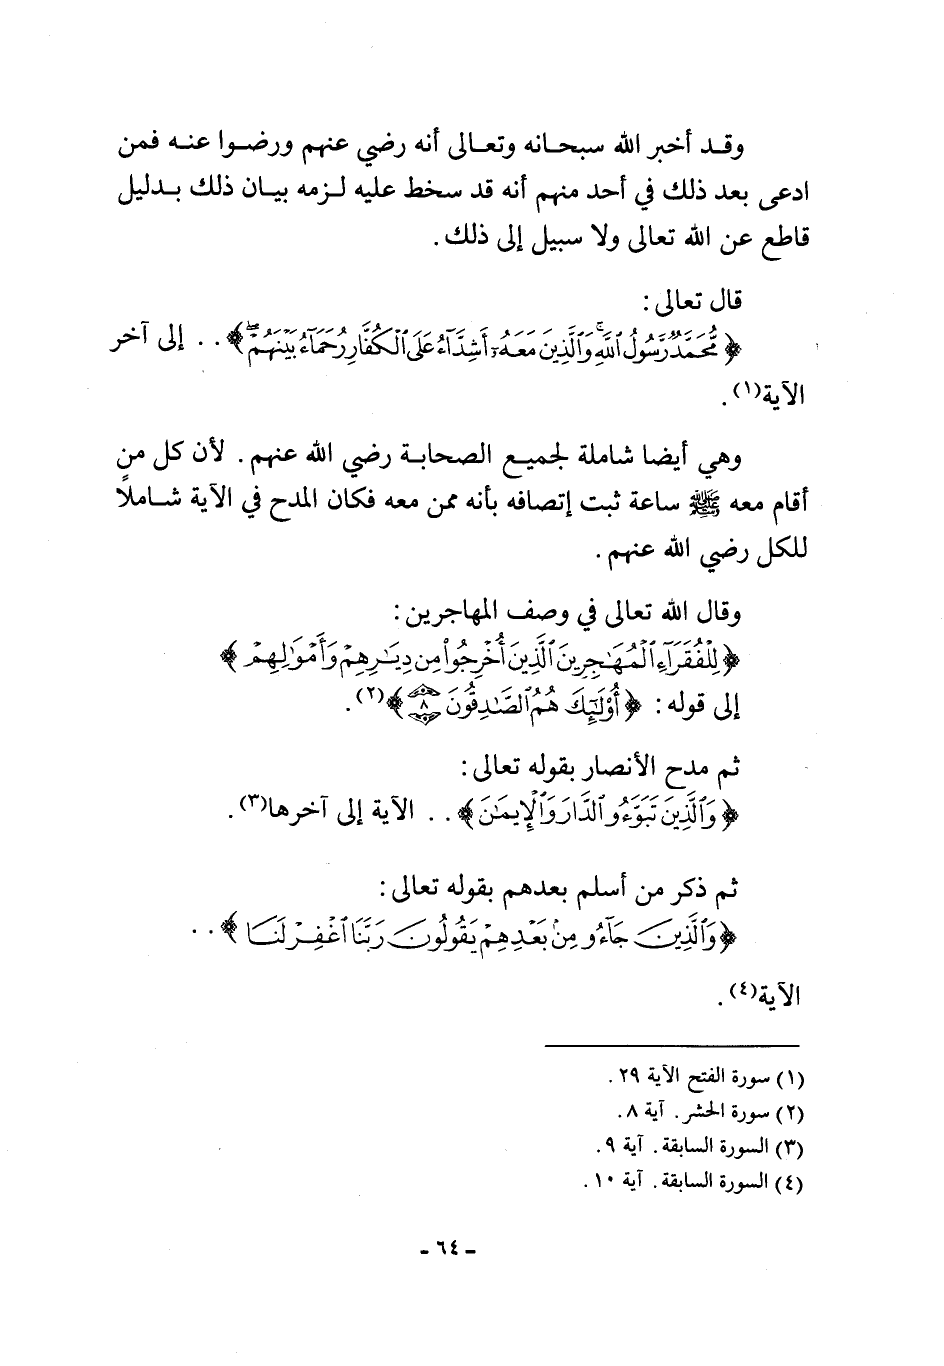 وقد أخبر الله سبحانه وتعالى أنه رضي عنهم ورضوا عنه فمن
ادعى بعد ذلك في أحد منهم أنه قد سخط عليه لزمه بيان ذلك بدليل
قاطع عن الله تعالى ولا سبيل إلى ذلك.
قال تعالى:
﴿مُّحَمَّدٌ رَّسُولُ ٱللَّهِ وَٱلَّذِينَ مَعَهُۥٓ أَشِدَّآءُ عَلَى ٱلْكُفَّارِ رُحَمَآءُ بَيْنَهُمْ﴾ . . إلى آخر
الآية(١).
وهي أيضا شاملة لجميع الصحابة رضي الله عنهم. لأن كل من
أقام معه ﷺ ساعة ثبت إتصافه بأنه ممن معه فكان المدح في الآية شاملاً
للكل رضي الله عنهم.
وقال الله تعالى في وصف المهاجرين:
﴿لِلْفُقَرَآءِ ٱلْمُهَٰجِرِينَ ٱلَّذِينَ أُخْرِجُوا۟ مِن دِيَٰرِهِمْ وَأَمْوَٰلِهِمْ﴾
إلى قوله: ﴿أُو۟لَٰٓئِكَ هُمُ ٱلصَّٰدِقُونَ ٨﴾(٢).
ثم مدح الأنصار بقوله تعالى:
﴿وَٱلَّذِينَ تَبَوَّءُو ٱلدَّارَ وَٱلْإِيمَٰنَ﴾ . . الآية إلى آخرها(٣).
ثم ذكر من أسلم بعدهم بقوله تعالى:
﴿وَٱلَّذِينَ جَآءُو مِنۢ بَعْدِهِمْ يَقُولُونَ رَبَّنَا ٱغْفِرْ لَنَا﴾ . .
الآية(٤).
(١) سورة الفتح الآية ٢٩.
(٢) سورة الحشر. آية ٨.
(٣) السورة السابقة. آية ٩.
(٤) السورة السابقة. آية ١٠.
- ٦٤ -